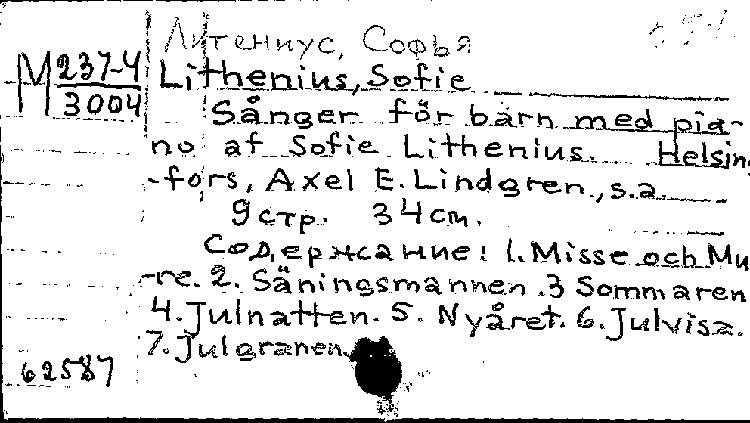 Литениус, Софья
М 237-4
3004
Lithenius, Sofie
Sånger för barn med pia-
no af Sofie Lithenius. Helsing-
-fors, Axel E. Lindgren., s.a.
9 стр. 34 см.
Содержание: 1. Misse och Mu-
-re. 2. Såningsmannen. 3 Sommaren
4. Julnatten. 5. Nyåret. 6. Julvisa.
7. Julgranen.
62587